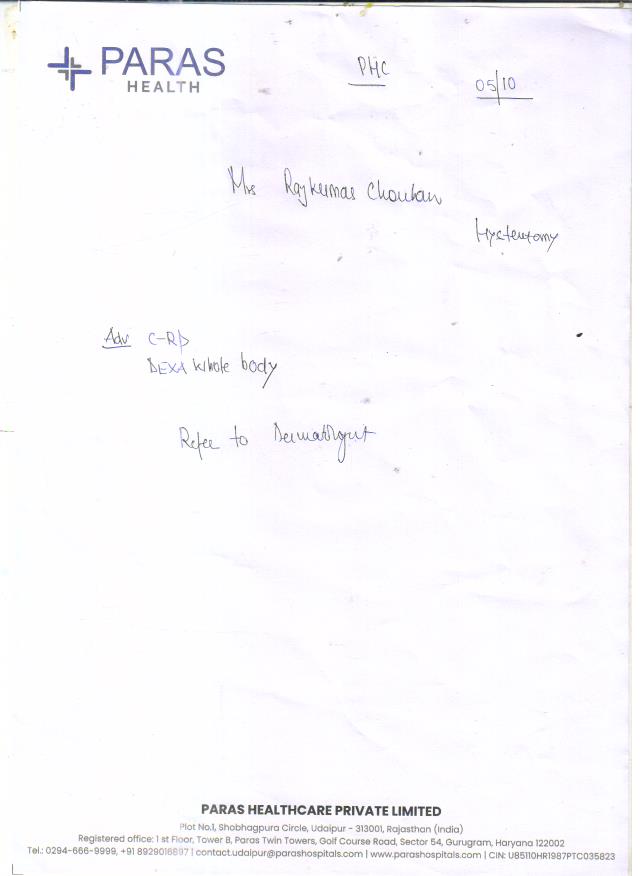 PARAS
HEALTH
PHC
05/10
Mrs Rajkumar Chouhan
Hysterectomy
Adv C-RP
DEXA Whole body
Refer to Dermatologist
PARAS HEALTHCARE PRIVATE LIMITED
Plot No.1, Shobhagpura Circle, Udaipur - 313001, Rajasthan (India)
Registered office: 1 st Floor, Tower B, Paras Twin Towers, Golf Course Road, Sector 54, Gurugram, Haryana 122002
Tel.: 0294-666-9999, +91 8929016897 | contact.udaipur@parashospitals.com | www.parashospitals.com | CIN: U85110HR1987PTC035823